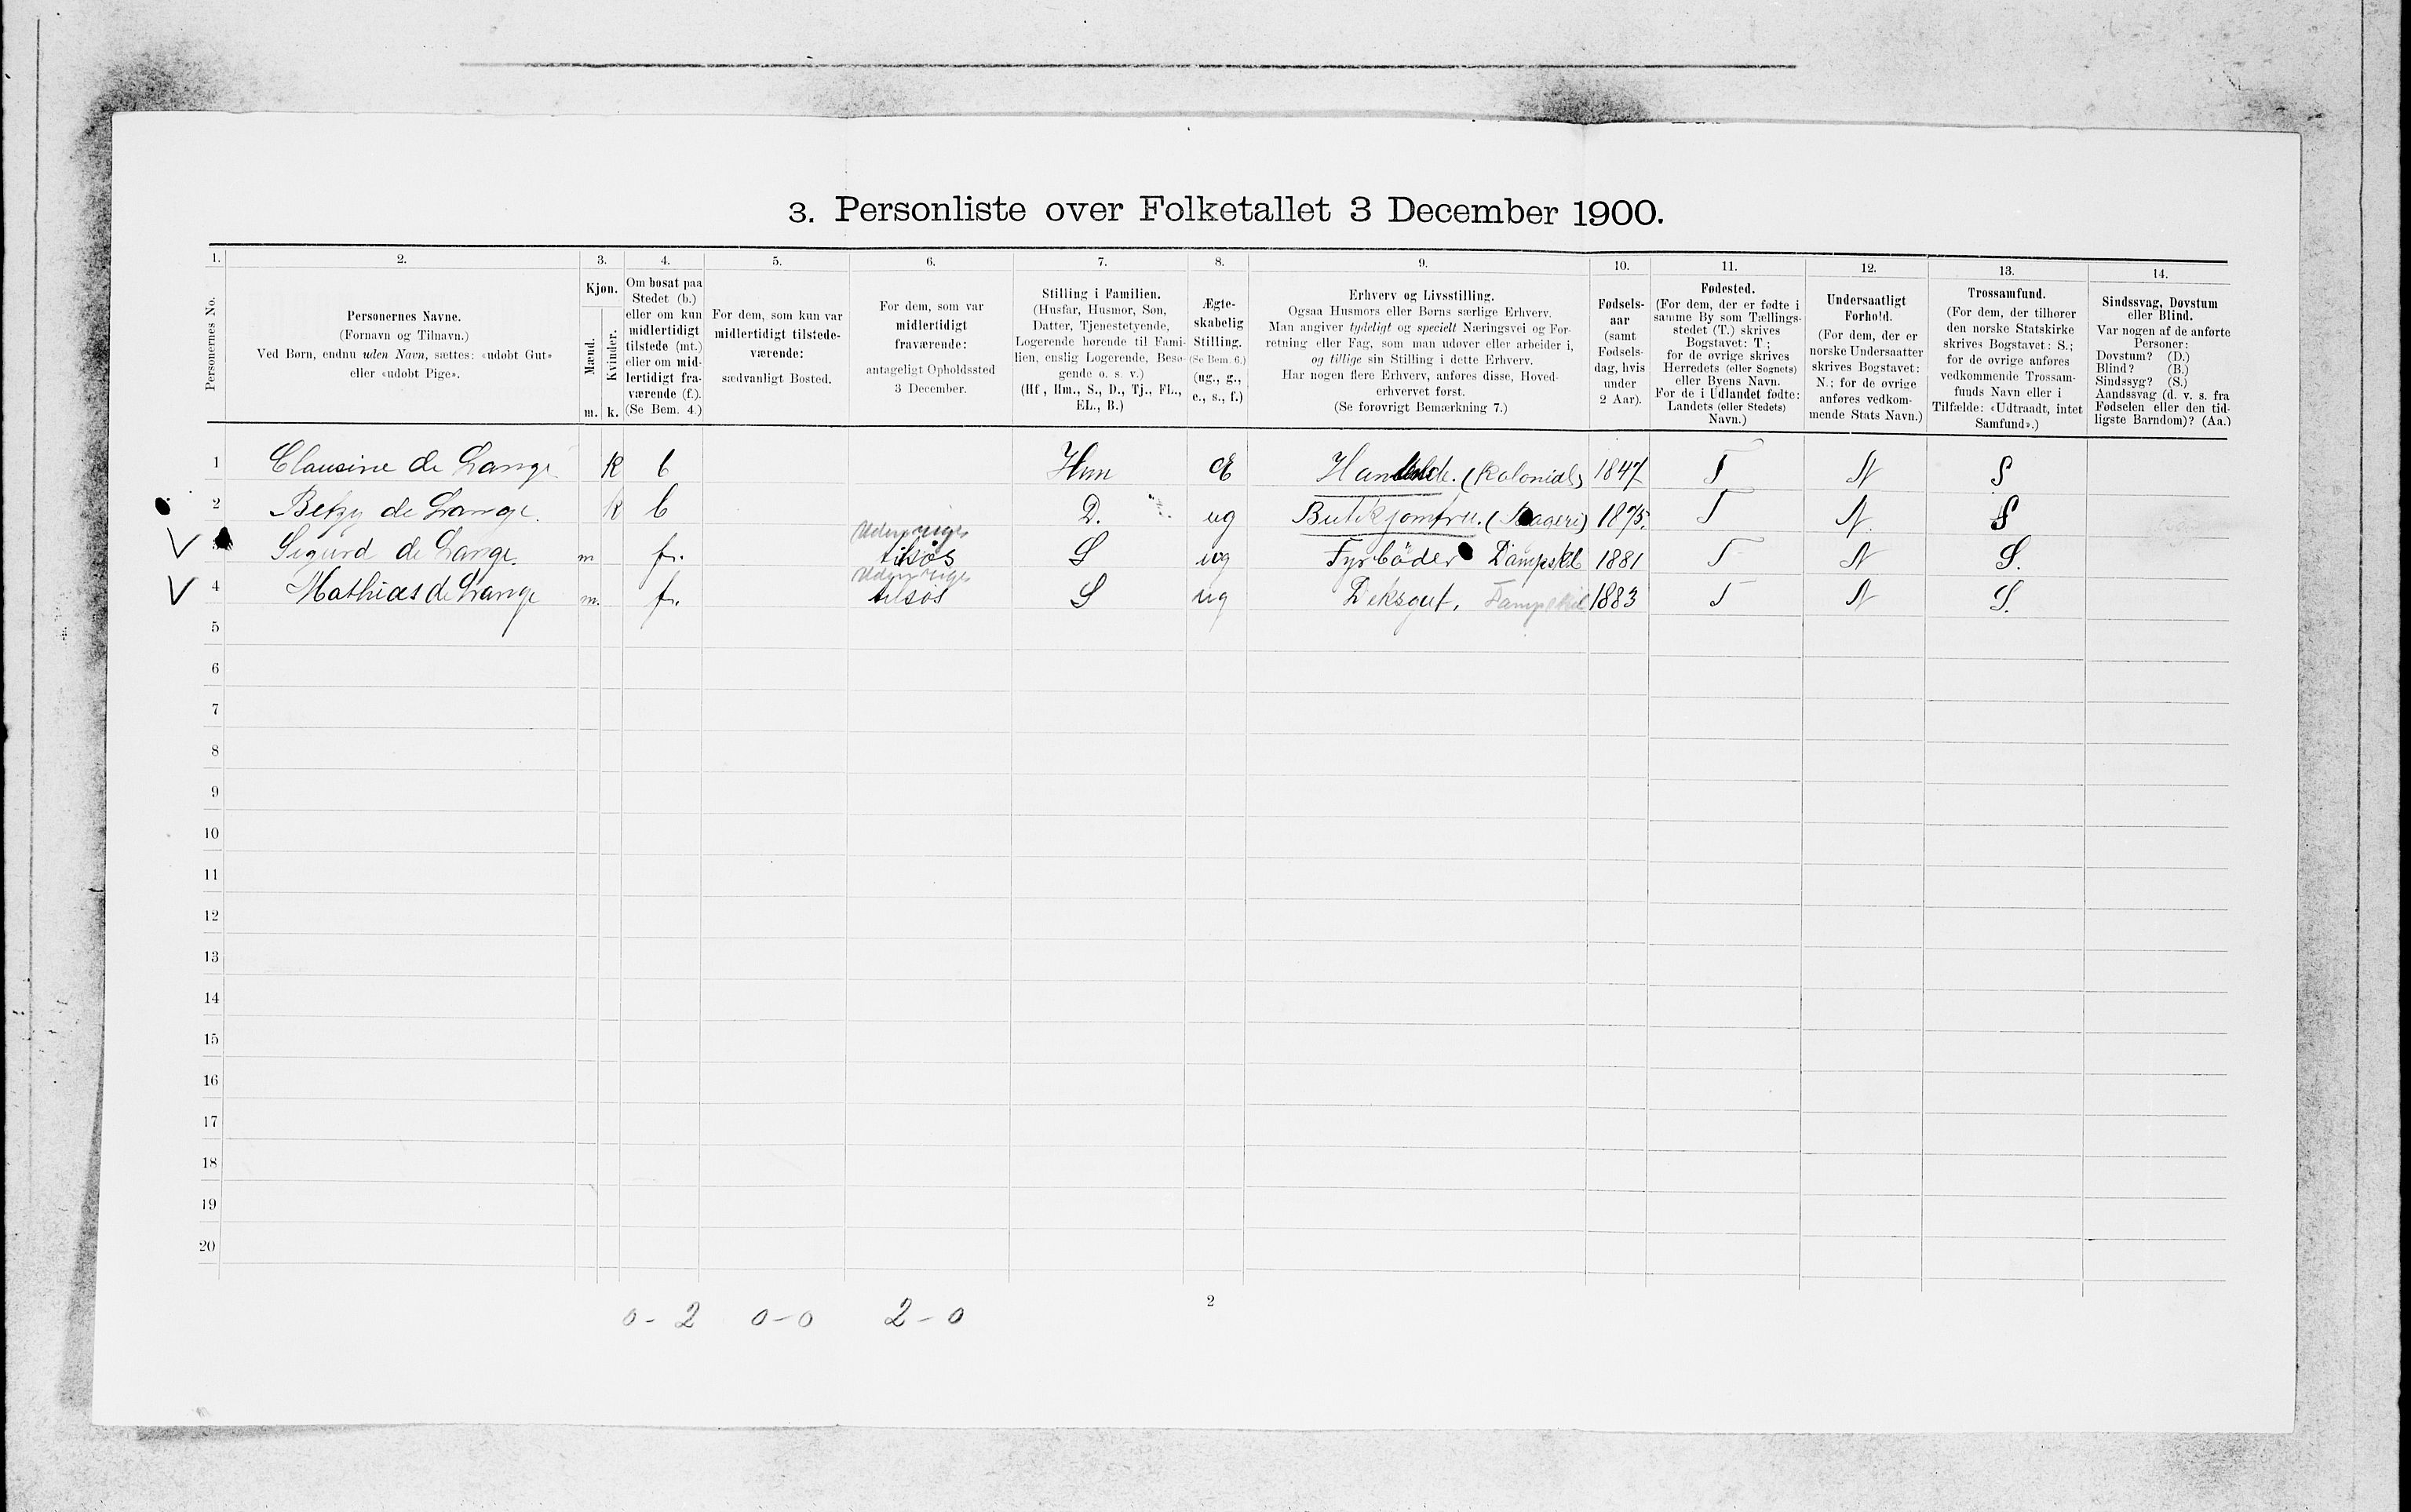 3. Personliste over Folketallet 3 December 1900.
1. 2. 3. 4. 5. 6. 7. 8. 9. 10. 11. 12. 13. 14.
Personernes No.
Personernes Navne.
(Fornavn og Tilnavn.)
Ved Børn, endnu uden Navn, sættes: «udøbt Gut»
eller «udøbt Pige».
Kjøn.
Mænd.
Kvinder.
m. k.
Om bosat paa
Stedet (b.)
eller om kun
midlertidigt
tilstede (mt.)
eller om mid-
lertidigt fra-
værende (f.).
(Se Bem. 4.)
For dem, som kun var
midlertidigt tilstede-
værende:
sædvanligt Bosted.
For dem, som var
midlertidigt
fraværende:
antageligt Opholdssted
3 December.
Stilling i Familien.
(Husfar, Husmor, Søn,
Datter, Tjenestetyende,
Logerende hørende til Fami-
lien, enslig Logerende, Besø-
gende o. s. v.)
(Hf, Hm., S., D., Tj., FL.,
EL., B.)
Ægte-
skabelig
Stilling.
(Se Bem. 6.)
(ug., g.,
e., s., f.)
Erhverv og Livsstilling.
Ogsaa Husmors eller Børns særlige Erhverv.
Man angiver tydeligt og specielt Næringsvei og For-
retning eller Fag, som man udøver eller arbeider i,
og tillige sin Stilling i dette Erhverv.
Har nogen flere Erhverv, anføres disse, Hoved-
erhvervet først.
(Se forøvrigt Bemærkning 7.)
Fødsels-
aar
(samt
Fødsels-
dag, hvis
under
2 Aar).
Fødested.
(For dem, der er fødte i
samme By som Tællings-
stedet (T.) skrives
Bogstavet: T;
for de øvrige skrives
Herredets (eller Sognets)
eller Byens Navn.
For de i Udlandet fødte:
Landets (eller Stedets)
Navn.)
Undersaatligt
Forhold.
(For dem, der er
norske Undersaatter
skrives Bogstavet:
N.; for de øvrige
anføres vedkom-
mende Stats Navn.)
Trossamfund.
(For dem, der tilhører
den norske Statskirke
skrives Bogstavet: S.;
for de øvrige anføres
vedkommende Trossam-
funds Navn eller i
Tilfælde: «Udtraadt, intet
Samfund».)
Sindssvag, Døvstum
eller Blind.
Var nogen af de anførte
Personer:
Døvstum? (D.)
Blind? (B.)
Sindssyg? (S.)
Aandssvag (d. v. s. fra
Fødselen eller den tid-
ligste Barndom)? (Aa.)
1 Clausine de Lange K b Hm E (Kolonial) 1847 T N S
2 Betzy de Lange. K b D. ug Butikjomfru. (Bageri) 1875. T N. S
Udenrigs
Sigurd de Lange. m fr. tilsøs S ug Fyrbøder Dampskb 1881 T N S.
Udenrigs
4 Mathias de Lange m. fr. tilsøs S ug Deksgut, 1883 T N S.
5
6
7
8
9
10
11
12
13
14
15
16
17
18
19
20
2
0-2 0-0 2-0